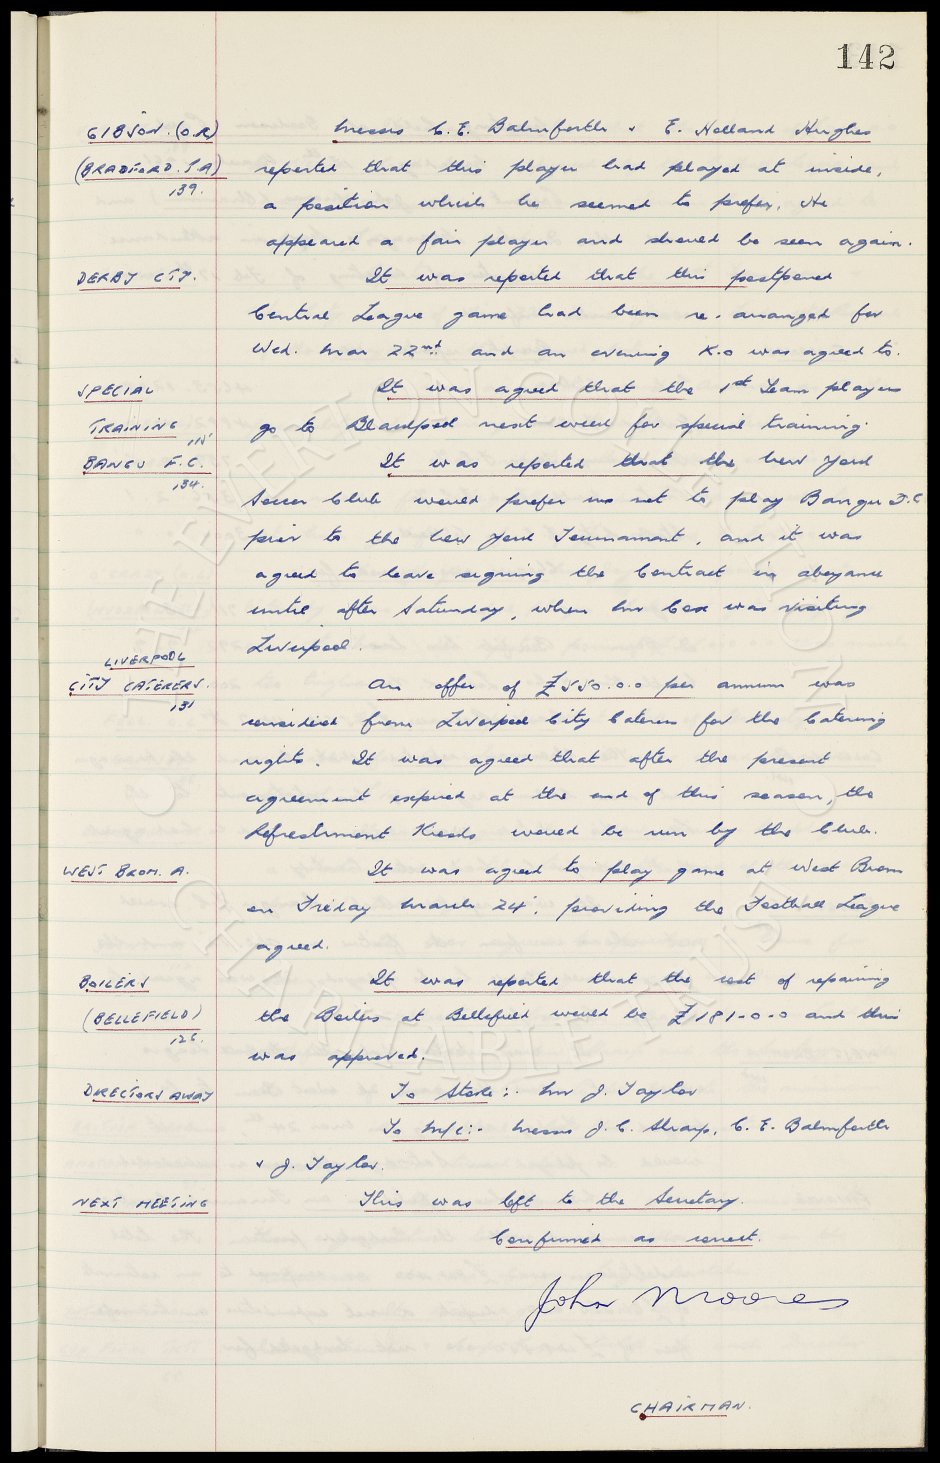 142
GIBSON. (O.R) Messrs C. E. Balmforth & E. Holland Hughes
(BRADFORD. S.A) reported that this player had played at inside,
139. a position which he seemed to prefer. He
appeared a fair player and should be seen again.
DERBY CTY. It was reported that this postponed
Central League game had been re-arranged for
Wed. Mar 22nd and an evening K.O was agreed to.
SPECIAL It was agreed that the 1st Team players
TRAINING go to Blackpool next week for special training.
BANGU F.C. It was reported that the New York
134. Soccer Club would prefer us not to play Bangu F.C
prior to the New York Tournament, and it was
agreed to leave signing the Contract in abeyance
until after Saturday, when Mr Cox was visiting
Liverpool.
LIVERPOOL
CITY CATERERS. An offer of £550.0.0 per annum was
131 considered from Liverpool City Caterers for the Catering
rights. It was agreed that after the present
agreement expired at the end of this season, the
Refreshment Kiosks would be run by the Club.
WEST BROM. A. It was agreed to play game at West Brom
on Friday March 24, providing the Football League
agreed.
BOILERS It was reported that the cost of repairing
(BELLEFIELD) the Boilers at Bellefield would be £181-0-0 and this
126. was approved.
DIRECTORS AWAY To Stoke:- Mr J. Taylor
To M/C:- Messrs J. C. Sharp, C. E. Balmforth
& J. Taylor.
NEXT MEETING This was left to the Secretary.
Confirmed as correct.
John Moores
CHAIRMAN.
THE EVERTON COLLECTION
CHARITABLE TRUST